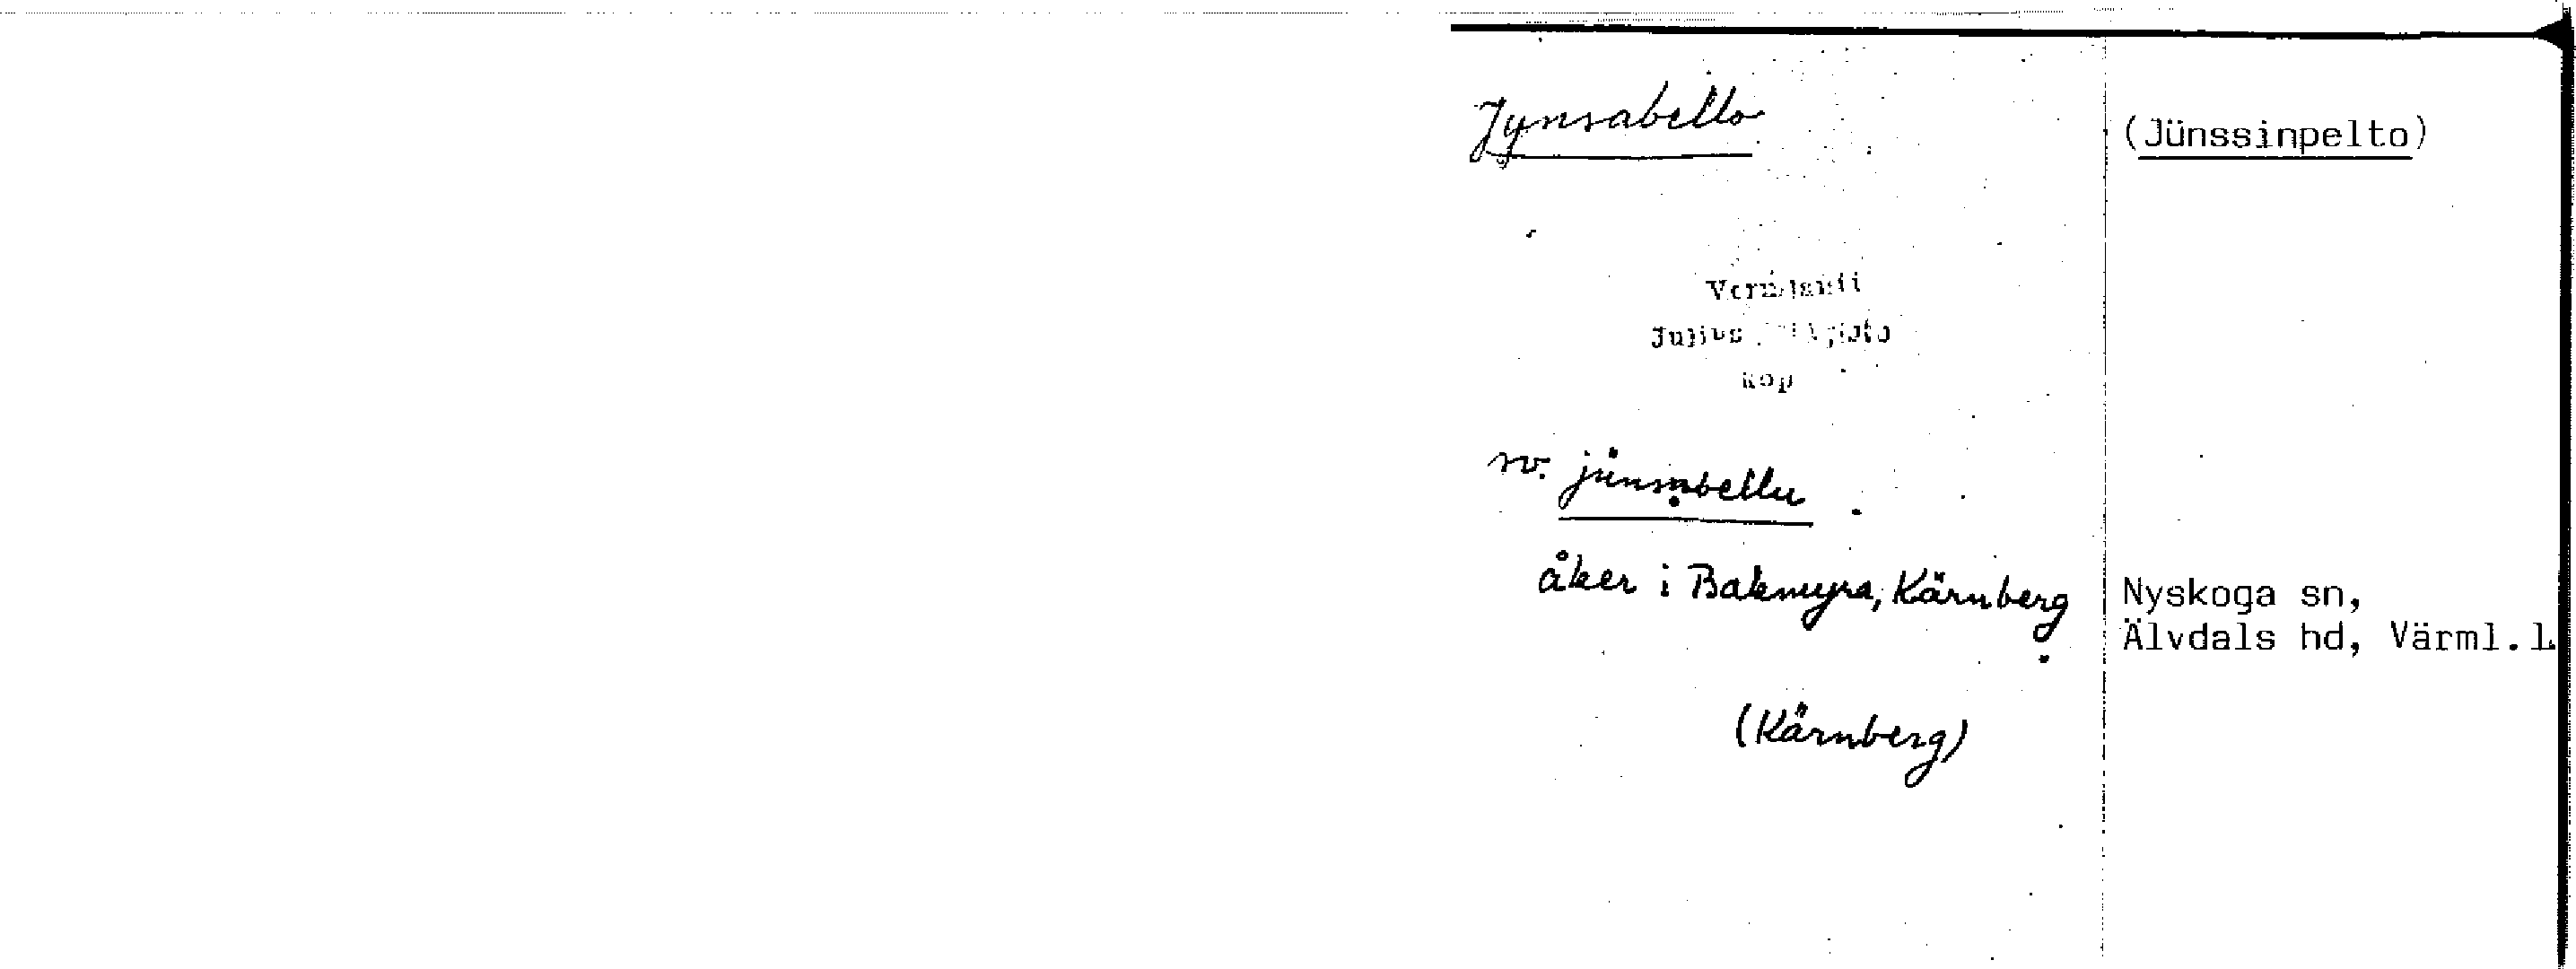 Jynsabello
(Jünssinpelto)
Vermlanti
Julius
kop
rv. jünsabellu
åker i Bakmyra, Kärnberg
Nyskoga sn,
Älvdals hd, Värml.l.
(Kärnberg)